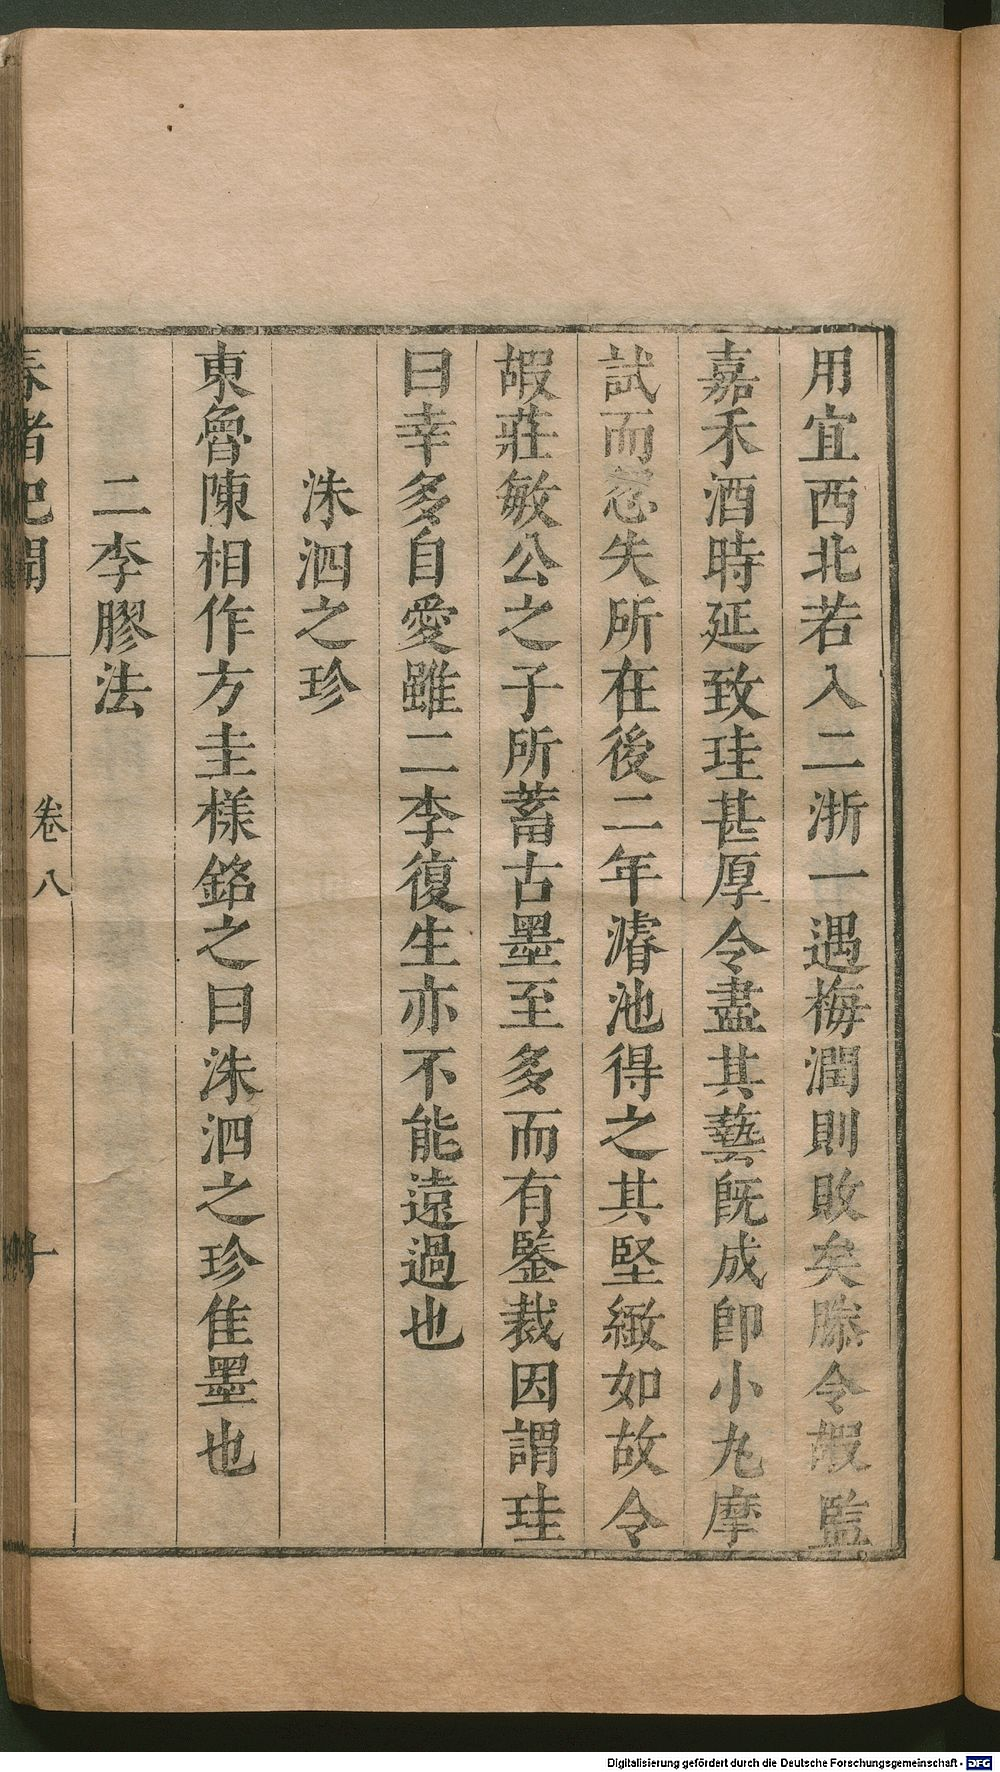 用宜西北若入二浙一遇梅潤則敗矣滕令嘏監
嘉禾酒時延致珪甚厚令盡其藝既成即小丸摩
試而忽失所在後二年濬池得之其堅緻如故令
嘏莊敏公之子所蓄古墨至多而有鑒裁因謂珪
曰幸多自愛雖二李復生亦不能遠過也
洙泗之珍
東魯陳相作方圭樣銘之曰洙泗之珍佳墨也
二李膠法
春渚紀聞 卷八 十
Digitalisierung gefördert durch die Deutsche Forschungsgemeinschaft - DFG